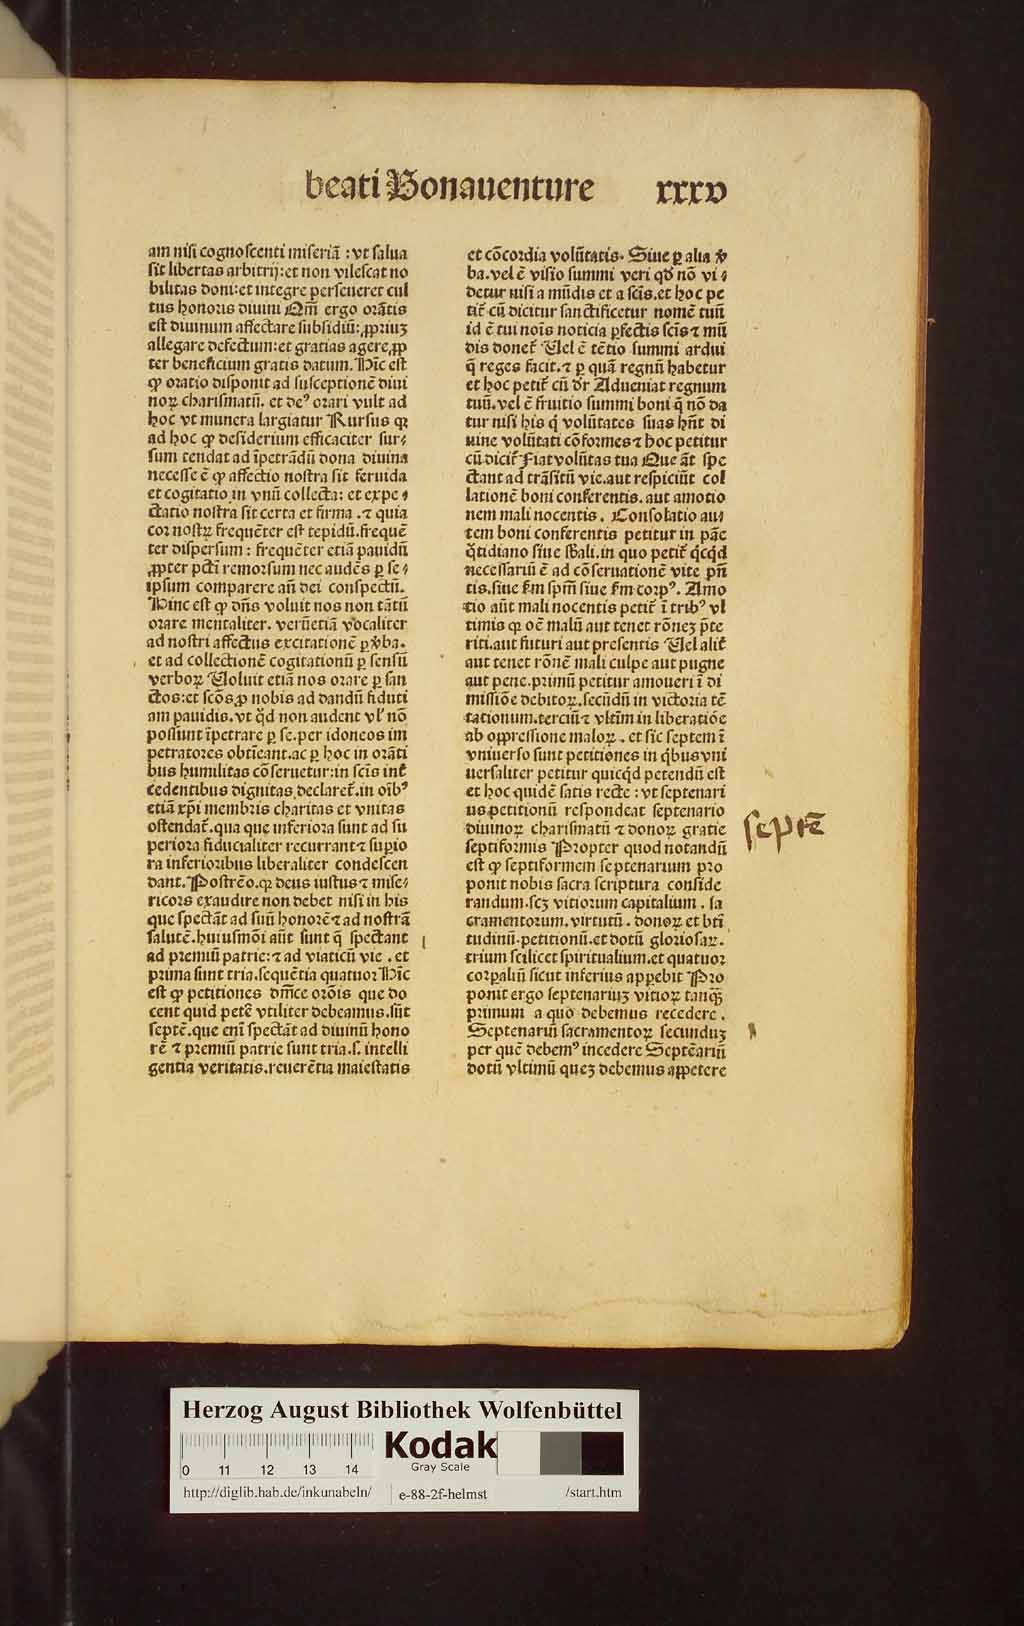 beati Bonauenture xxxv
am nisi cognoscenti miseriā : vt salua
sit libertas arbitrij: et non vilescat no
bilitas doni: et integre perseueret cul
tus honoris diuini Qm̄ ergo orātis
est diuinum affectare subsidiū: ꝓpriuꝫ
allegare defectum: et gratias agere ꝓp
ter beneficium gratis datum. Hīc est
ꝙ oratio disponit ad susceptionē diui
noꝝ charismatū. et deꝰ orari vult ad
hoc vt munera largiatur Rursus qꝛ
ad hoc ꝙ desiderium efficaciter sur⸗
sum tendat ad īpetrādū dona diuina
necesse ē ꝙ affectio nostra sit feruida
et cogitatio in vnū collecta: et expe⸗
ctatio nostra sit certa et firma . ⁊ quia
cor nostꝝ frequēter est tepidū. frequē
ter dispersum : frequēter etiā pauidū
ꝓpter pctī remorsum nec audēs ꝑ se⸗
ipsum comparere añ dei conspectū.
Hinc est ꝙ dn̄s voluit nos non tātū
orare mentaliter. verūetiā vocaliter
ad nostri affectus excitationē ꝑ v̄ba.
et ad collectionē cogitationū ꝑ sensū
verboꝝ Uoluit etiā nos orare ꝑ san
ctos: et scōs ꝓ nobis ad dandū fiduti
am pauidis. vt qd̓ non audent vl̓ nō
possunt īpetrare ꝑ se. per idoneos im
petratores obtīeant. ac ꝑ hoc in orāti
bus humilitas cōseruetur: in scīs int̄
cedentibus dignitas declaret̄. in oībꝰ
etiā xp̄i membris charitas et vnitas
ostendat̄. qua que inferiora sunt ad su
periora fiducialiter recurrant ⁊ suꝑio
ra inferioribus liberaliter condescen
dant. Postrēo. qꝛ deus iustus ⁊ mise⸗
ricors exaudire non debet nisi in his
que spectāt ad suū honorē ⁊ ad nostrā
salutē. huiusmōi aūt sunt q̄ spectant
ad premiū patrie: ⁊ ad viaticū vie . et
prima sunt tria. sequētia quatuor Hīc
est ꝙ petitiones dn̄ice orōis que do
cent quid petē vtiliter debeamus. sūt
septē. que eni̅ spectāt ad diuinū hono
rē ⁊ premiū patrie sunt tria .s. intelli
gentia veritatis. reuerētia maiestatis
et cōcordia volūtatis. Siue ꝑ alia v̄
ba. vel ē visio summi veri qd̓ nō vi⸗
detur nisi a mūdis et a scīs. et hoc pe
tit̄ cū dicitur sanctificetur nomē tuū
id ē tui noīs noticia ꝑfectis scīs ⁊ mū
dis donet̄ Uel ē tētio summi ardui
q̄ reges facit. ⁊ ꝑ quā regnū habetur
et hoc petit̄ cū dr̄ Adueniat regnum
tuū. vel ē fruitio summi boni q̄ nō da
tur nisi his q̄ volūtates suas hn̄t di
uine volūtati cōformes ⁊ hoc petitur
cū dicit̄ Fiat volūtas tua Que āt spe
ctant ad trāsitū vie. aut respiciūt col
lationē boni conferentis. aut amotio
nem mali nocentis . Consolatio au⸗
tem boni conferentis petitur in pāe
q̄tidiano siue sp̄ali. in quo petit̄ qͥcqͥd
necessariū ē ad cōseruationē vite pn̄
tis. siue fm̄ spm̄ siue fm̄ corpꝰ. Amo
tio aūt mali nocentis petit̄ ī tribꝰ vl
timis ꝙ oē malū aut tenet rōneꝫ p̄te
riti. aut futuri aut presentis Uel alit̄
aut tenet rōnē mali culpe aut pugne
aut pene. primū petitur amoueri ī di
missiōe debitoꝝ. secūdū in victoria tē
tationum. terciū ⁊ vltīm in liberatiōe
ab oppressione maloꝝ . et sic septem ī
vniuerso sunt petitiones in qͥbus vni
uersaliter petitur quicqͥd petendū est
et hoc quidē satis recte : vt septenari
us petitionū respondeat septenario
diuinoꝝ charismatū ⁊ donoꝝ gratie
septiformis Propter quod notandū
est ꝙ septiformem septenarium pro
ponit nobis sacra scriptura conside
randum. scꝫ vitiorum capitalium . sa
cramentorum. virtutū . donoꝝ et btī
tudinū. petitionū. et dotū gloriosaꝝ.
trium scilicet spiritualium. et quatuoꝛ
corpaliū sicut inferius apꝑebit Pro
ponit ergo septenariuꝫ vitioꝝ tanqꝫ
primum a quo debemus recedere .
Septenariū sacramentoꝝ secunduꝫ
per quē debemꝰ incedere Septēariū
dotū vltimū queꝫ debemus appetere
septē
Herzog August Bibliothek Wolfenbüttel
0 11 12 13 14
Kodak
Gray Scale
http://diglib.hab.de/inkunabeln/ e-88-2f-helmst /start.htm